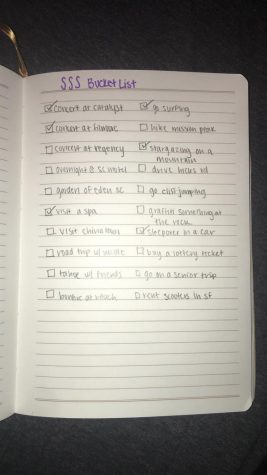 SSS Bucket List
concert at catalyst
go surfing
concert at
hike mission peak
concert at regency
stargazing on a
mountain
overnight @ SC motel
drive hicks rd
garden of eden SC
go cliff jumping
visit a spa
graffiti something at
the
visit chinatown
sleepover in a car
road trip w/
buy a lottery ticket
tahoe w/ friends
go on a senior trip
bonfire at beach
rent scooters in SF